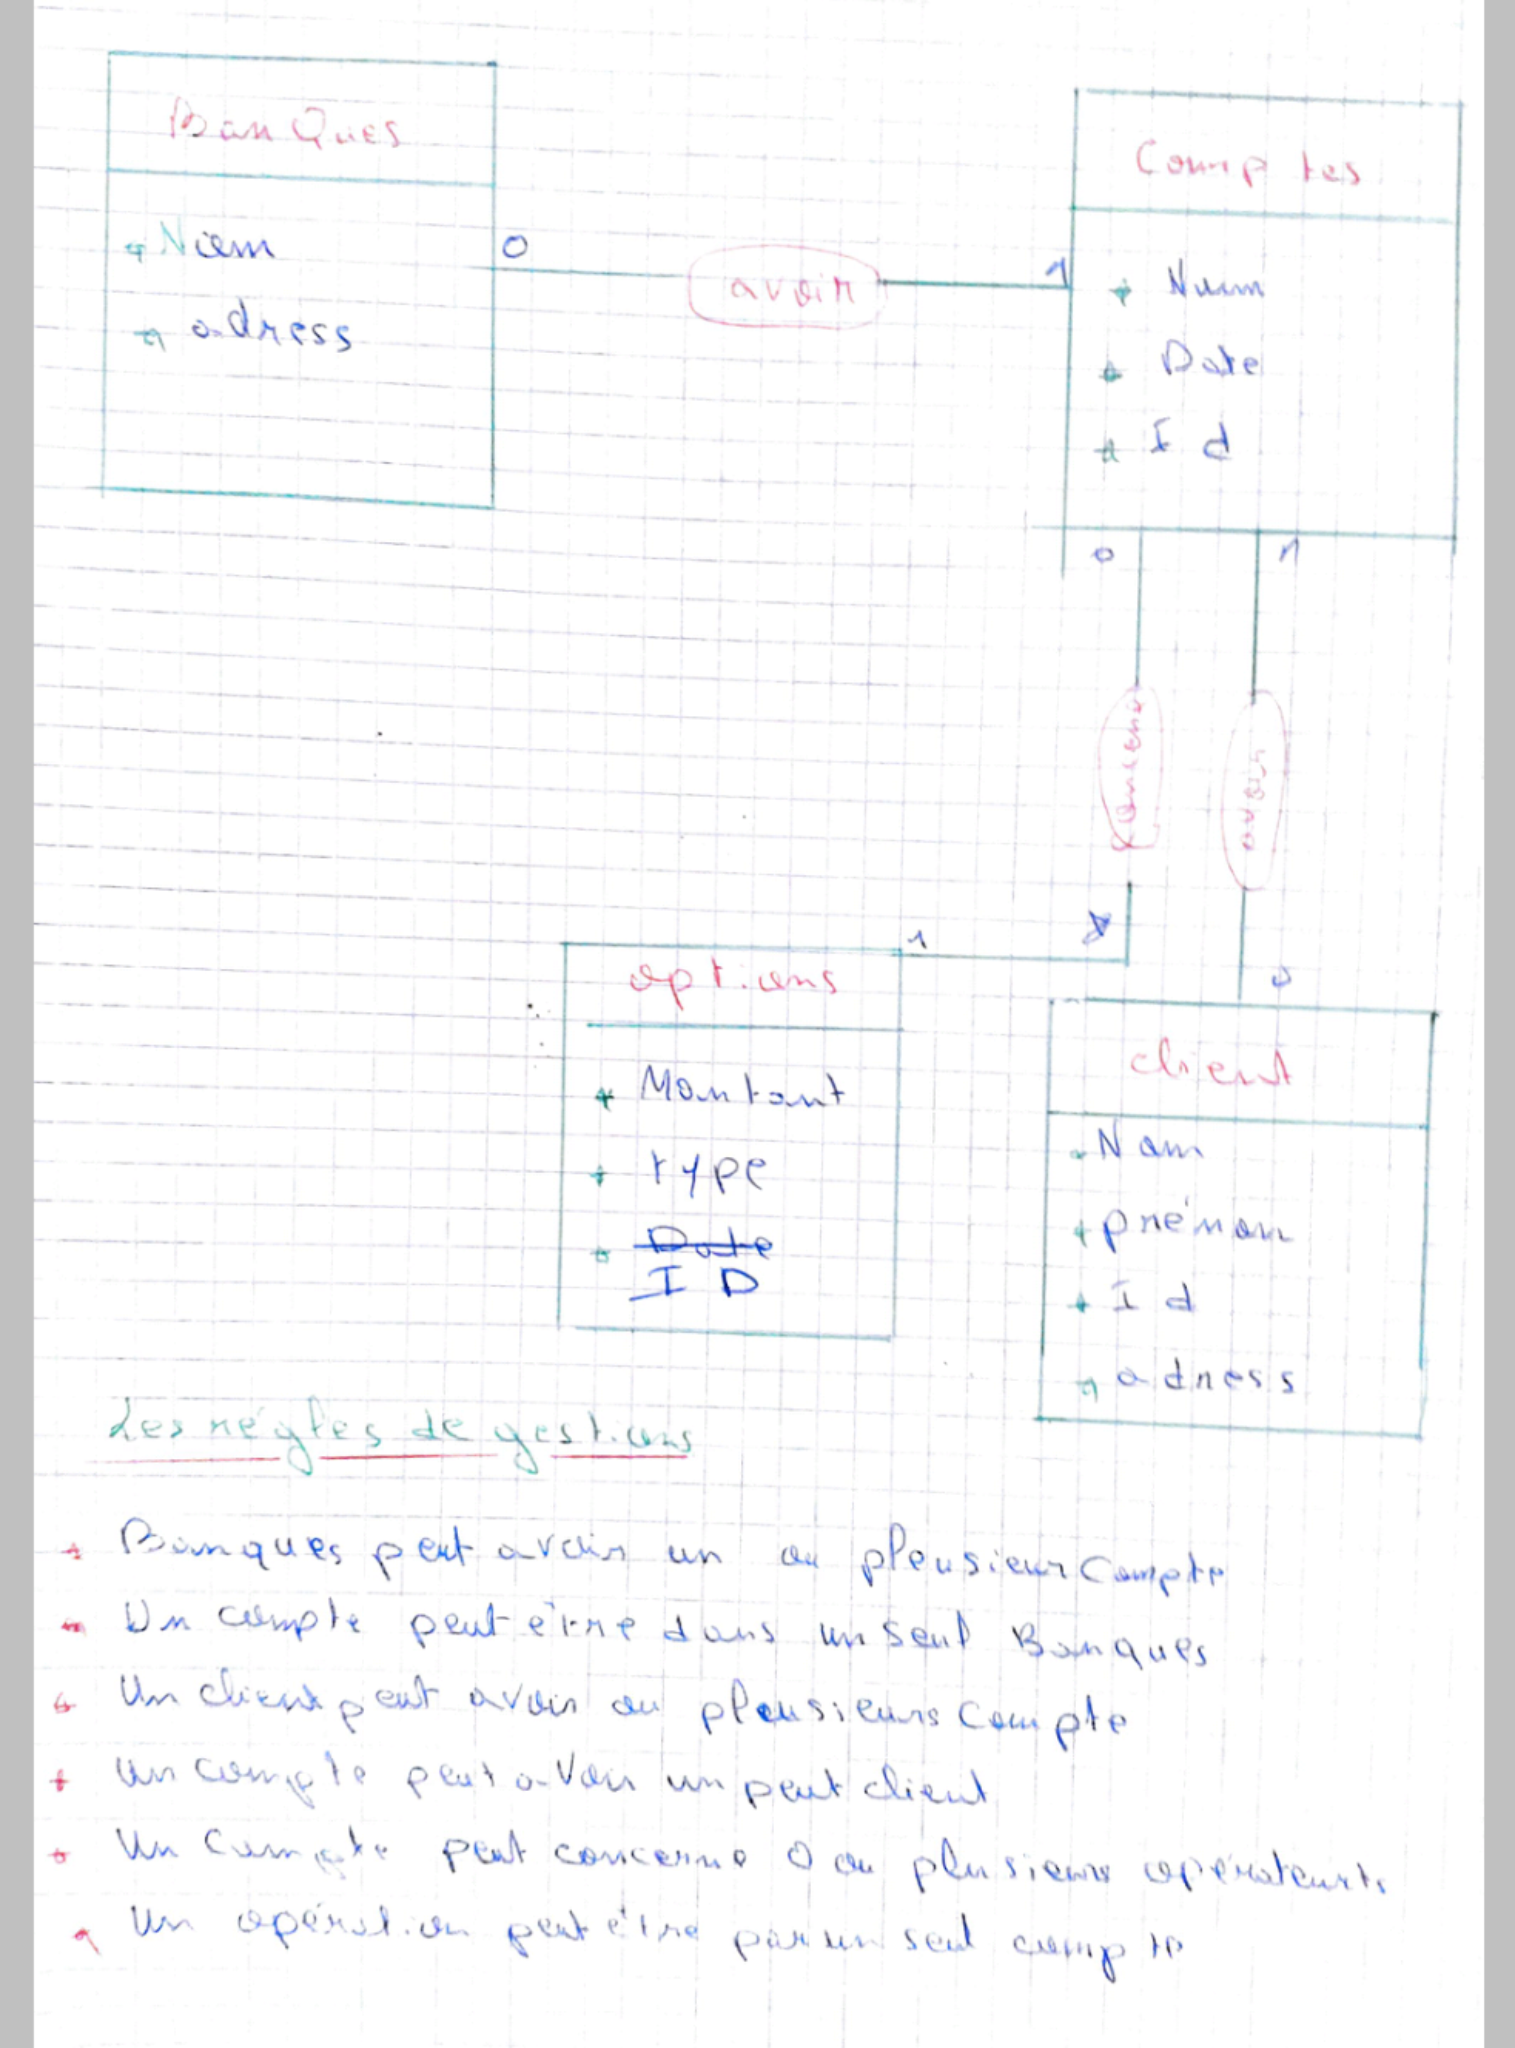 BanQues
Nom
adress
0
avoir
1
Comptes
Num
Date
Id
0
1
concerné
avoir
1
0
options
Montant
type
Date
ID
client
Nom
prénom
Id
adress
Les régles de gestions
Banques peut avoir un ou pleusieur Compte
Un compte peut être dans un seul Banques
Un client peut avoir ou pleusieurs Compte
un compte peut avoir un peut client
Un Compte peut concerne 0 ou plusieurs opérateurs
Un opération peut être par un seul compte